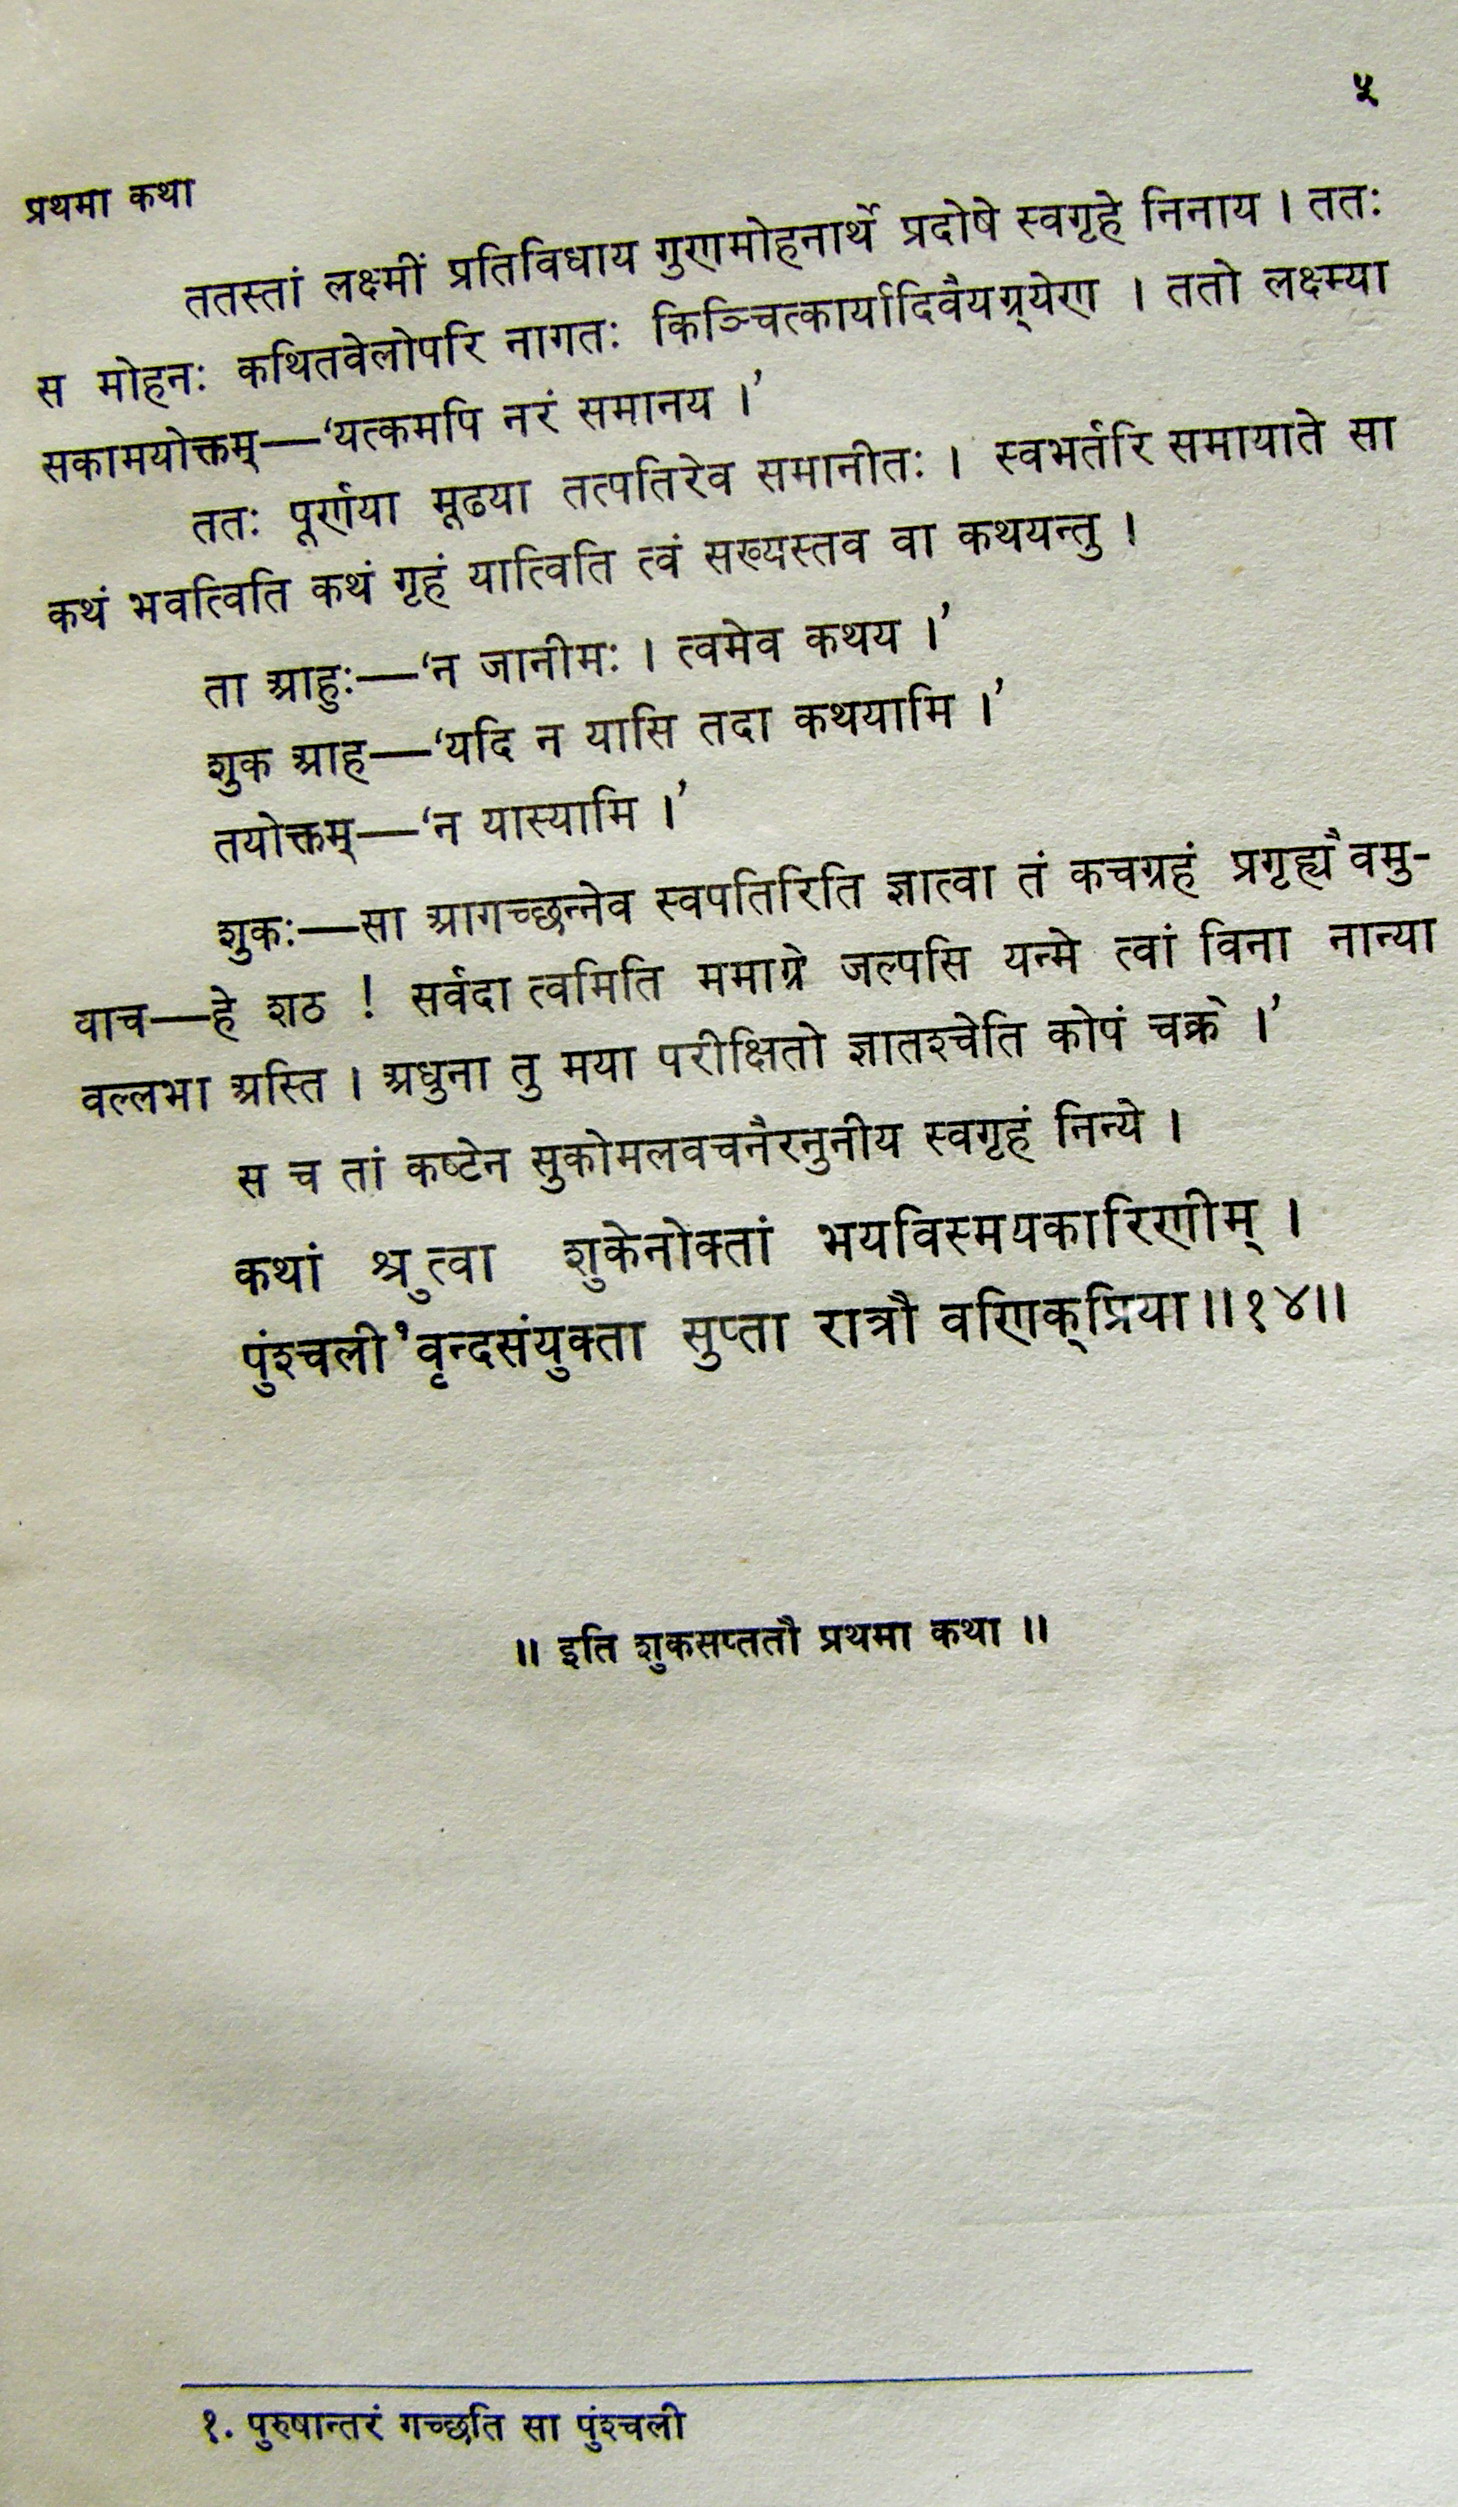 ५
प्रथमा कथा
ततस्तां लक्ष्मीं प्रतिविधाय गुणमोहनार्थे प्रदोषे स्वगृहे निनाय । ततः
स मोहनः कथितवेलोपरि नागतः किञ्चित्कार्यादिवैयग्र्येण । ततो लक्ष्म्या
सकामयोक्तम्—‘यत्कमपि नरं समानय ।’
ततः पूर्णया मूढया तत्पतिरेव समानीतः । स्वभर्तरि समायाते सा
कथं भवत्विति कथं गृहं यात्विति त्वं सख्यस्तव वा कथयन्तु ।
ता आहुः—‘न जानीमः । त्वमेव कथय ।’
शुक आह—‘यदि न यासि तदा कथयामि ।’
तयोक्तम्—‘न यास्यामि ।’
शुकः—सा आगच्छन्नेव स्वपतिरिति ज्ञात्वा तं कचग्रहं प्रगृह्यैवमु-
वाच—हे शठ ! सर्वदा त्वमिति ममाग्रे जल्पसि यन्मे त्वां विना नान्या
वल्लभा अस्ति । अधुना तु मया परीक्षितो ज्ञातश्चेति कोपं चक्रे ।’
स च तां कष्टेन सुकोमलवचनैरनुनीय स्वगृहं निन्ये ।
कथां श्रुत्वा शुकेनोक्तां भयविस्मयकारिणीम् ।
पुंश्चली१वृन्दसंयुक्ता सुप्ता रात्रौ वणिक्प्रिया॥१४॥
॥ इति शुकसप्ततौ प्रथमा कथा ॥
१. पुरुषान्तरं गच्छति सा पुंश्चली